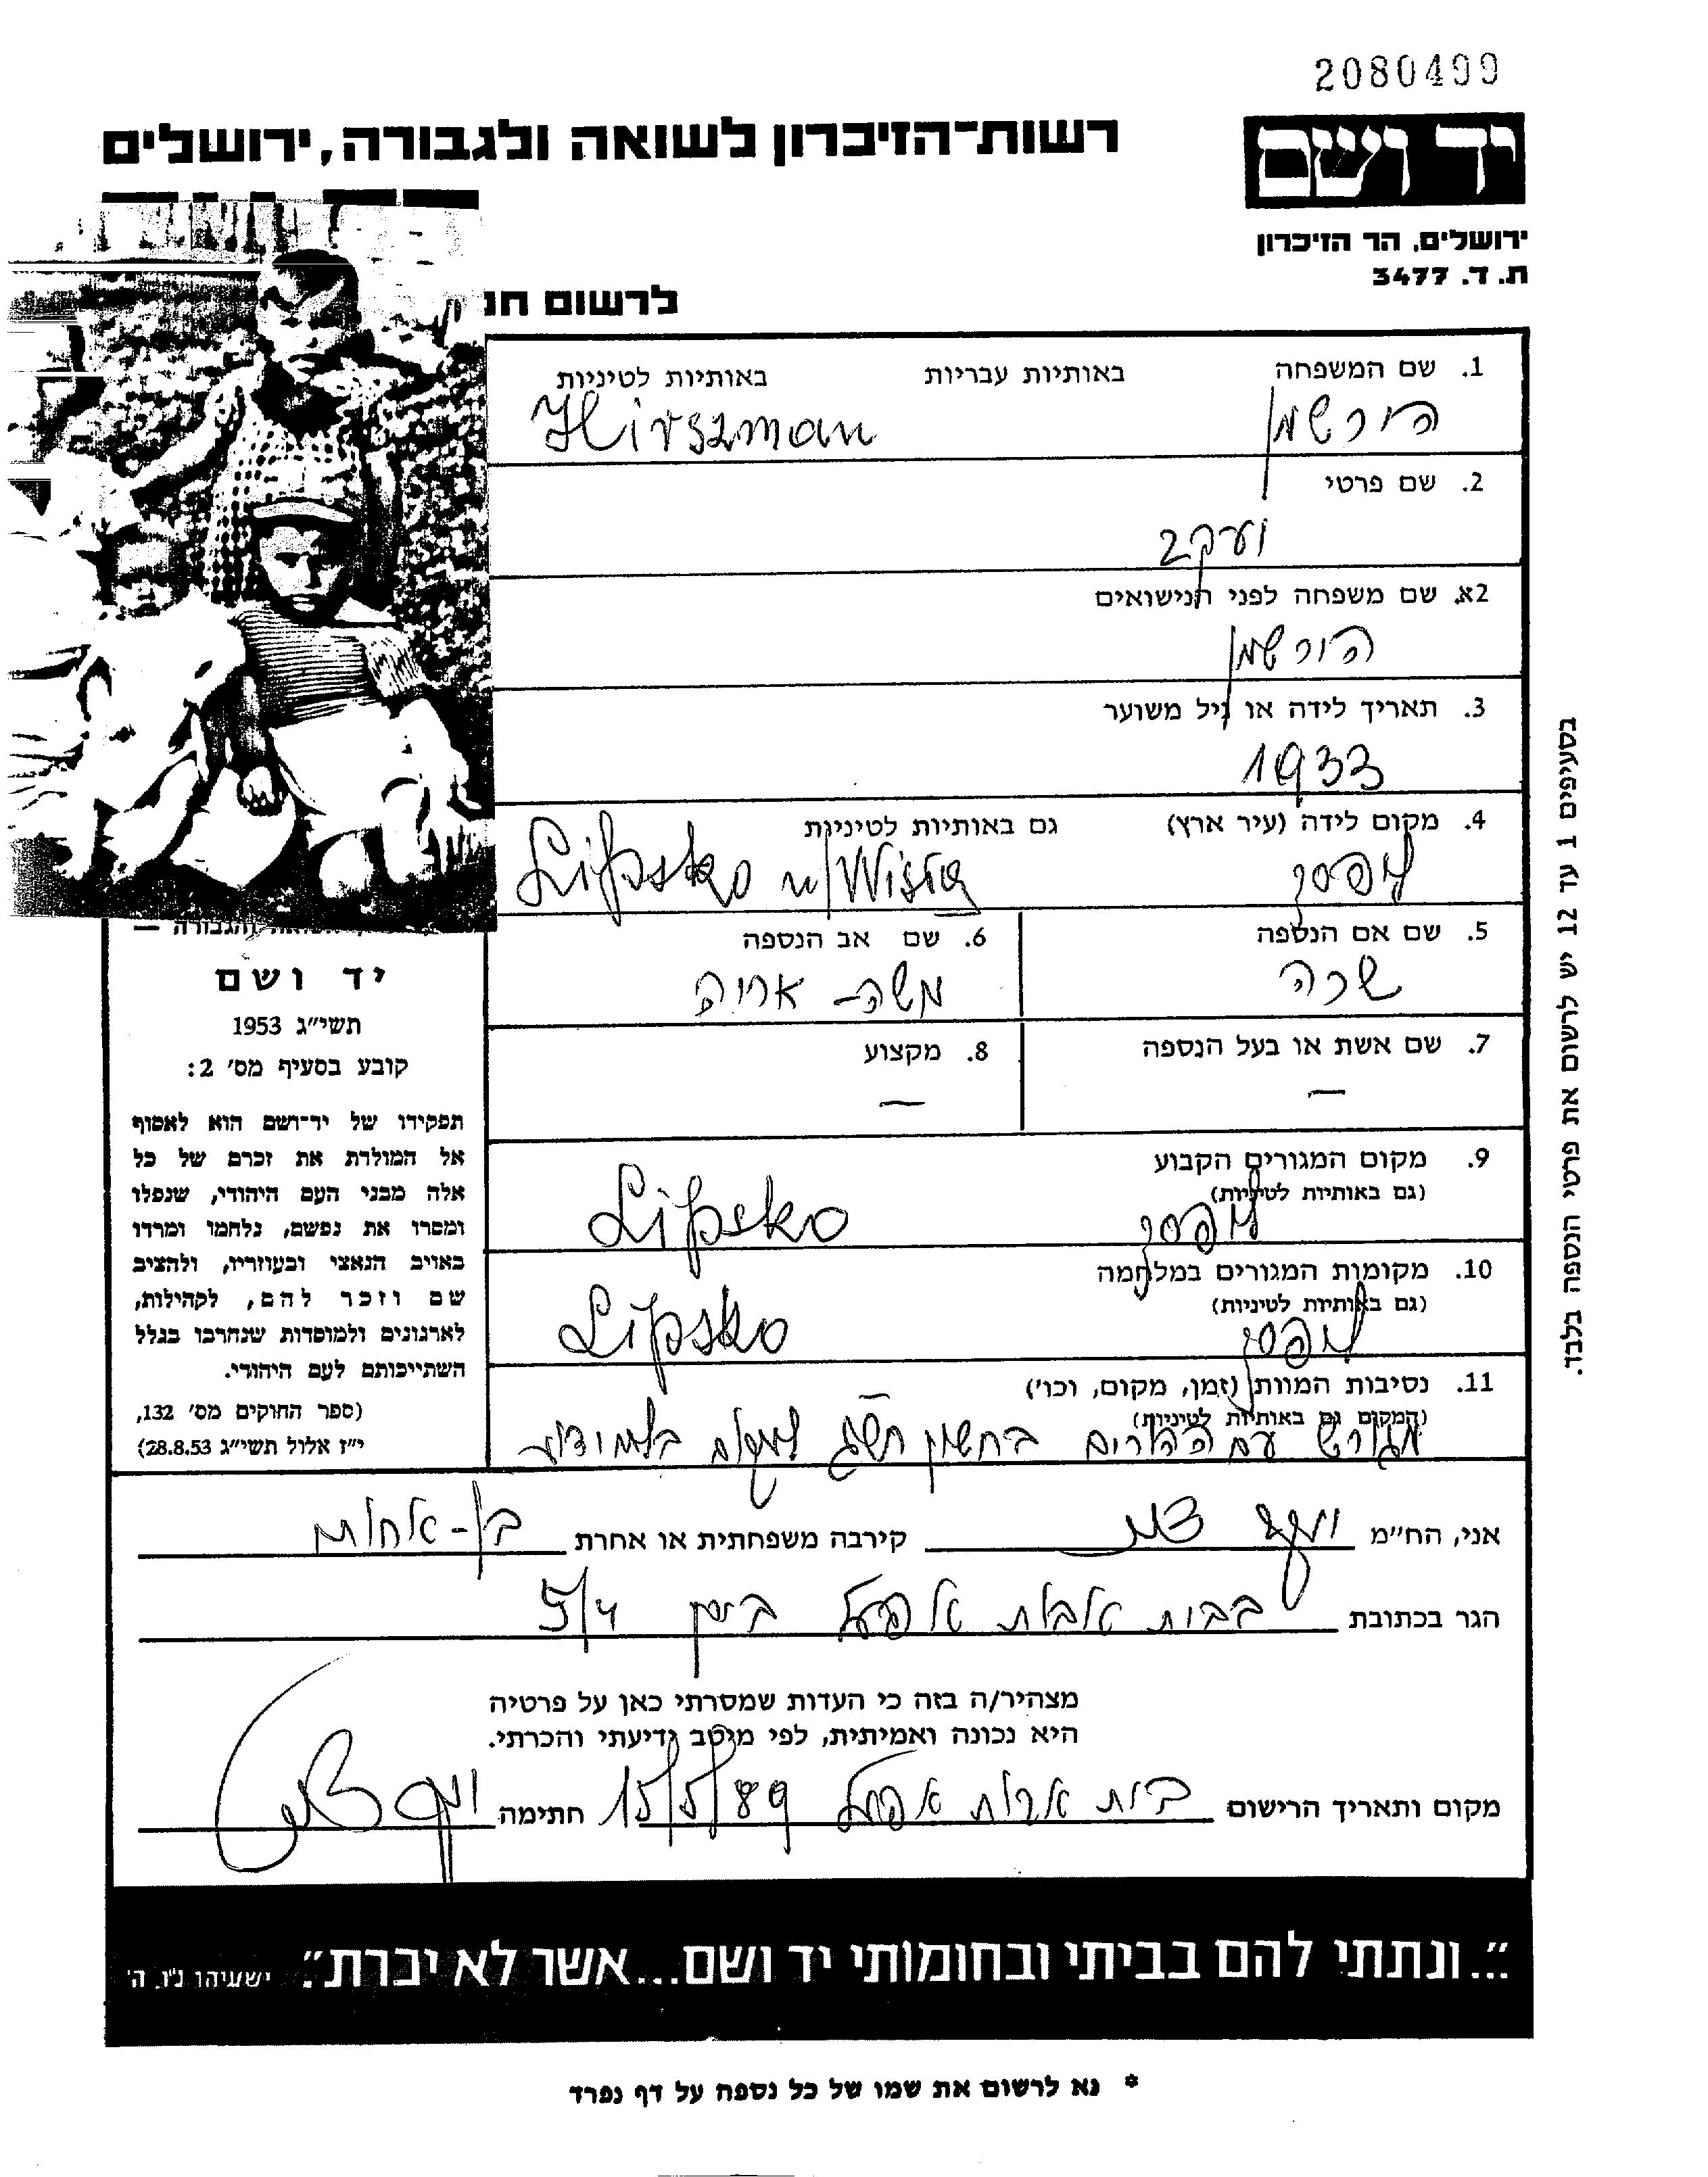 2080499
יד ושם
רשות־הזיכרון לשואה ולגבורה, ירושלים
ירושלים, הר הזיכרון
ת. ד. 3477
לרשום חנ
1. שם המשפחה באותיות עבריות באותיות לטיניות
הירשמן Hirszman
2. שם פרטי
יעקב
2א. שם משפחה לפני הנישואים
הירשמן
3. תאריך לידה או גיל משוער
1933
4. מקום לידה (עיר ארץ) גם באותיות לטיניות
ליפסק Lipsko n/Wisłą
5. שם אם הנספה 6. שם אב הנספה
שרה משה - אריה
7. שם אשת או בעל הנספה 8. מקצוע
— —
9. מקום המגורים הקבוע
(גם באותיות לטיניות)
ליפסק Lipsko
10. מקומות המגורים במלחמה
(גם באותיות לטיניות)
ליפסק Lipsko
11. נסיבות המוות (זמן, מקום, וכו')
(המקום גם באותיות לטיניות)
מגורש עם ההורים בחשון תש"ג למקום בלתי ידוע
והגבורה —
יד ושם
תשי"ג 1953
קובע בסעיף מס' 2:
תפקידו של יד־ושם הוא לאסוף
אל המולדת את זכרם של כל
אלה מבני העם היהודי, שנפלו
ומסרו את נפשם, נלחמו ומרדו
באויב הנאצי ובעוזריו, ולהציב
שם וזכר להם, לקהילות,
לארגונים ולמוסדות שנחרבו בגלל
השתייכותם לעם היהודי.
(ספר החוקים מס' 132,
י"ז אלול תשי"ג 28.8.53)
בסעיפים 1 עד 12 יש לרשום את פרטי הנספה בלבד.
אני, הח"מ יוסף קירבה משפחתית או אחרת בן-אחות
הגר בכתובת בבית אבות 5/4
מצהיר/ה בזה כי העדות שמסרתי כאן על פרטיה
היא נכונה ואמיתית, לפי מיטב ידיעתי והכרתי.
מקום ותאריך הרישום בית אבות 15/5/89 חתימה יוסף
"...ונתתי להם בביתי ובחומותי יד ושם...אשר לא יכרת". ישעיהו נ"ו, ה'
* נא לרשום את שמו של כל נספה על דף נפרד